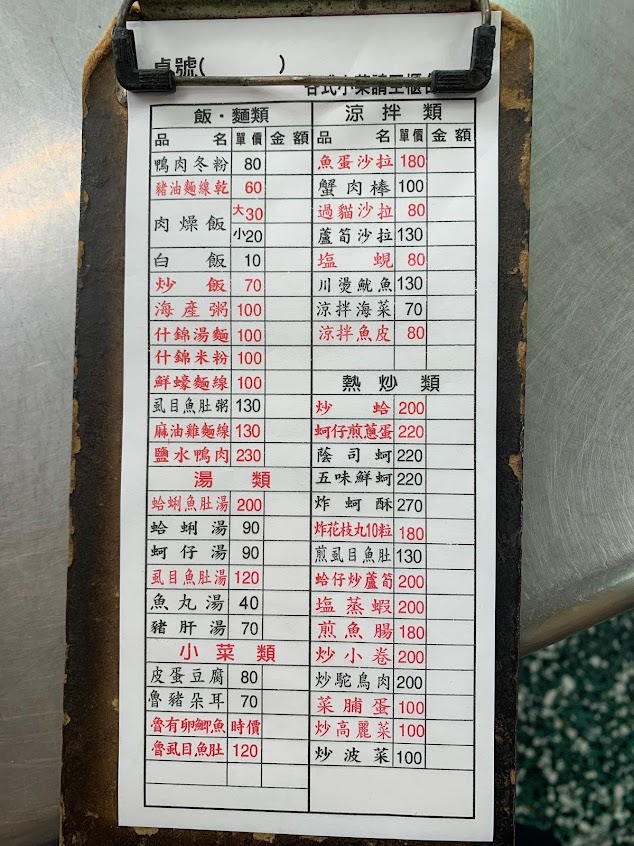 桌號(　　　)
各式小菜請至櫃台
飯・麵類
品名 單價 金額
鴨肉冬粉 80
豬油麵線乾 60
肉燥飯 大30
小20
白飯 10
炒飯 70
海產粥 100
什錦湯麵 100
什錦米粉 100
鮮蠔麵線 100
虱目魚肚粥 130
麻油雞麵線 130
鹽水鴨肉 230
湯類
蛤蜊魚肚湯 200
蛤蜊湯 90
蚵仔湯 90
虱目魚肚湯 120
魚丸湯 40
豬肝湯 70
小菜類
皮蛋豆腐 80
魯豬朵耳 70
魯有卵鯽魚 時價
魯虱目魚肚 120
涼拌類
品名 單價 金額
魚蛋沙拉 180
蟹肉棒 100
過貓沙拉 80
蘆筍沙拉 130
塩蜆 80
川燙魷魚 130
涼拌海菜 70
涼拌魚皮 80
熱炒類
炒蛤 200
蚵仔煎蔥蛋 220
蔭司蚵 220
五味鮮蚵 220
炸蚵酥 270
炸花枝丸10粒 180
煎虱目魚肚 130
蛤仔炒蘆筍 200
塩蒸蝦 200
煎魚腸 180
炒小卷 200
炒駝鳥肉 200
菜脯蛋 100
炒高麗菜 100
炒波菜 100